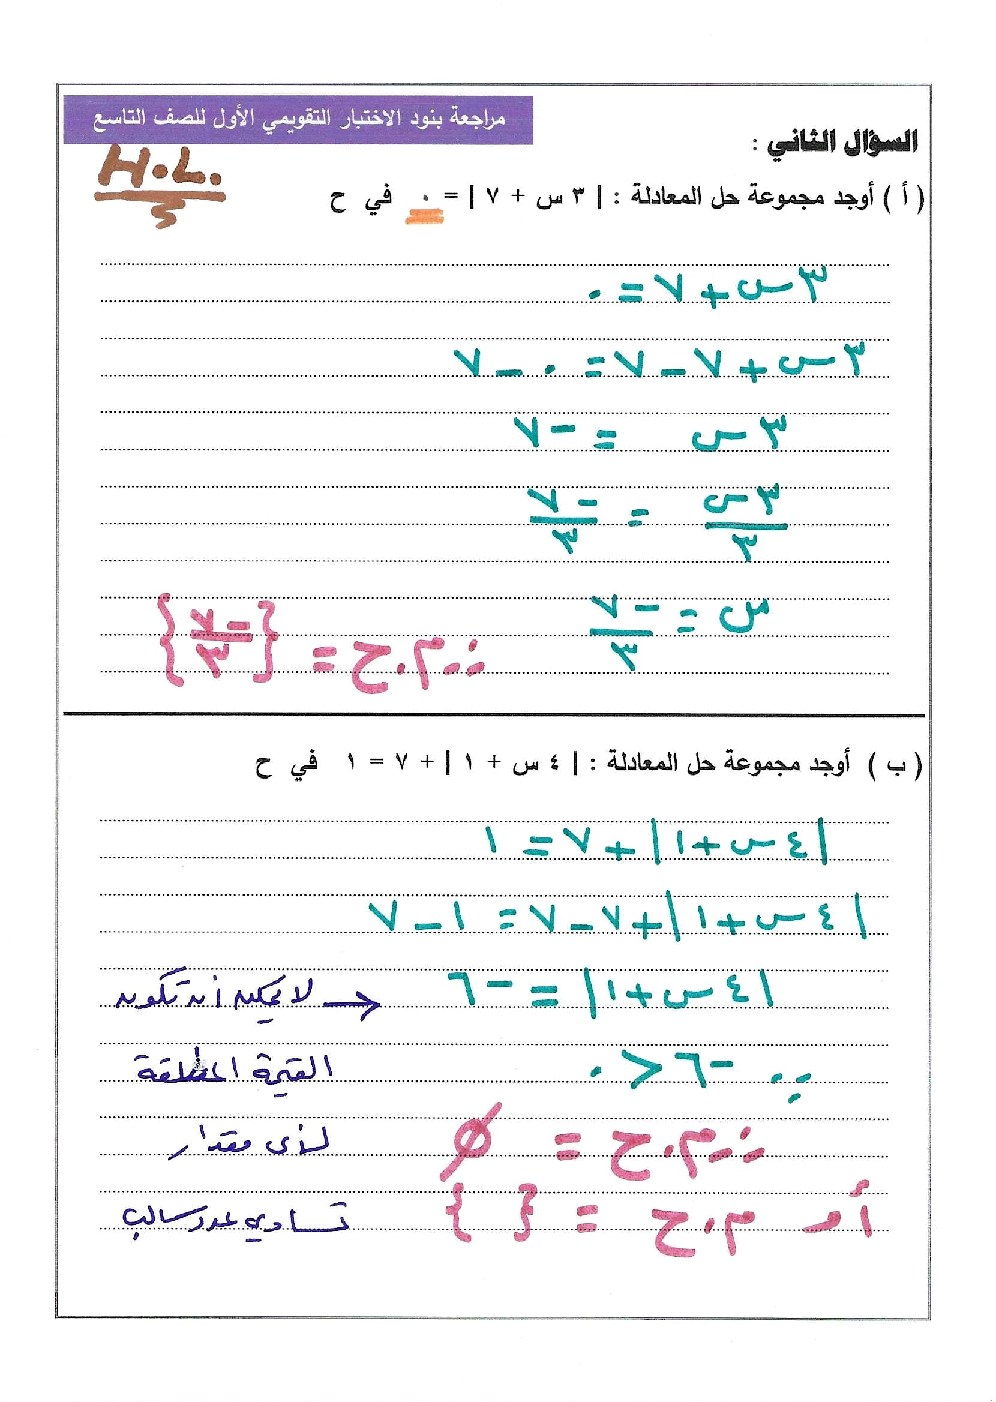 مراجعة بنود الاختبار التقويمي الأول للصف التاسع
السؤال الثاني :
H.L.
( أ ) أوجد مجموعة حل المعادلة : | ٣ س + ٧ | = ٠ في ح
٣ س + ٧ = ٠
٣ س + ٧ − ٧ = ٠ − ٧
٣ س = − ٧
٣ س / ٣ = − ٧ / ٣
س = − ٧ / ٣
∴ م.ح = { − ٧ / ٣ }
( ب ) أوجد مجموعة حل المعادلة : | ٤ س + ١ | + ٧ = ١ في ح
| ٤ س + ١ | + ٧ = ١
| ٤ س + ١ | + ٧ − ٧ = ١ − ٧
| ٤ س + ١ | = − ٦ → لا يمكن أن تكون
∵ − ٦ > ٠ القيمة المطلقة
∴ م.ح = ∅ لأي مقدار
أو م.ح = { } تساوي عدد سالب